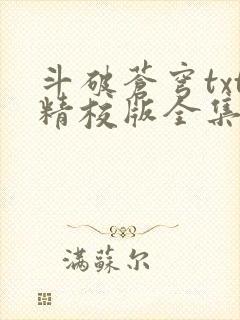 斗破蒼穹txt
精校版全集
满蘇尔